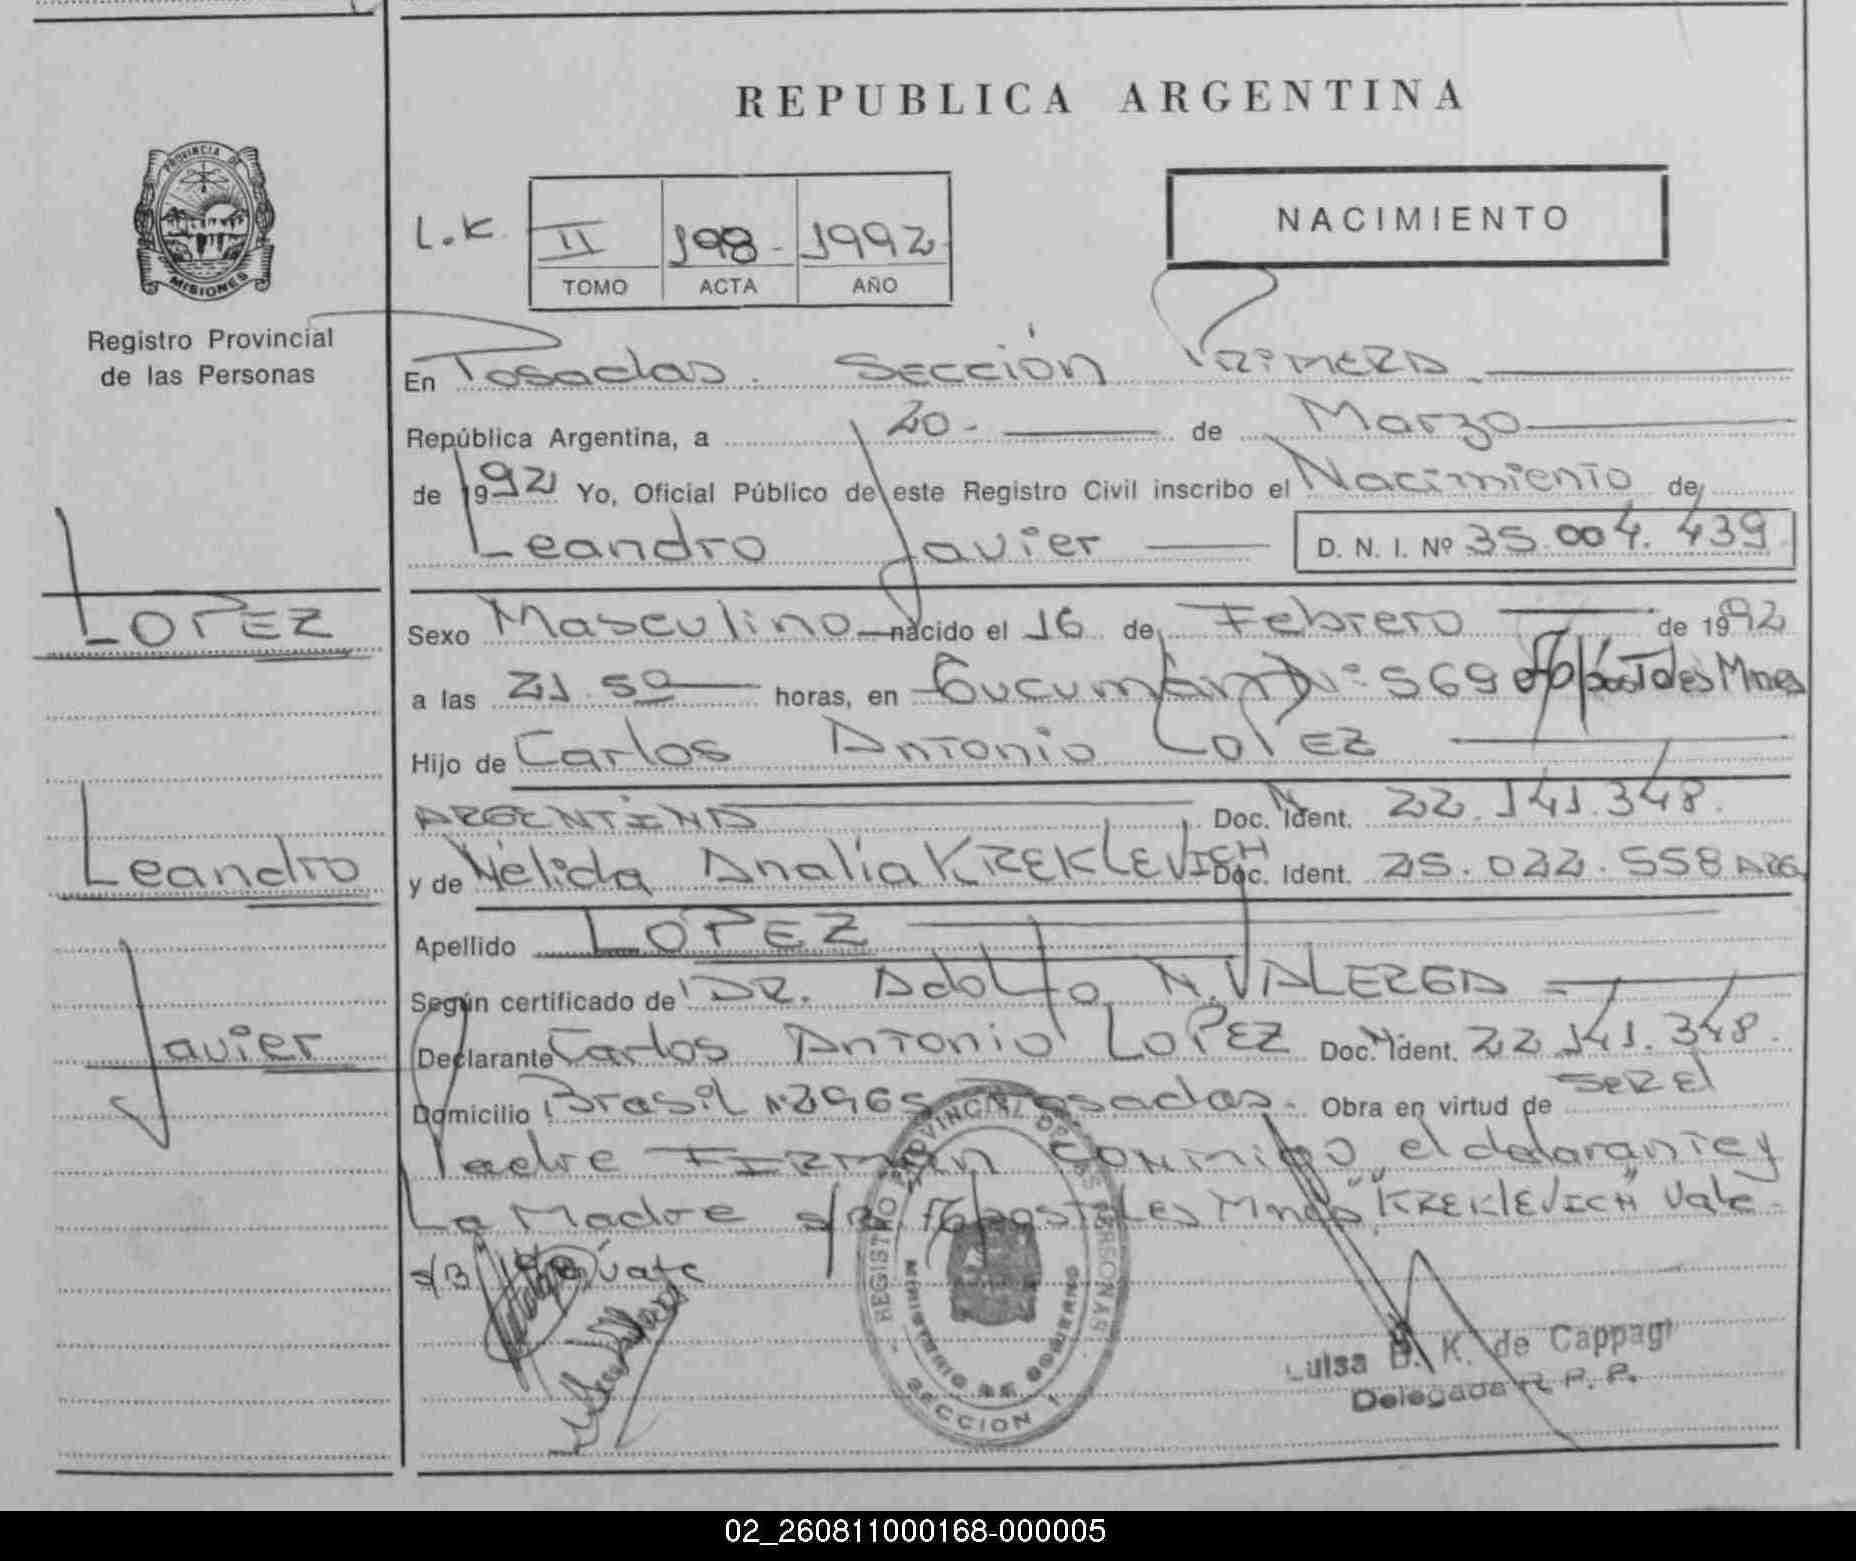 REPUBLICA ARGENTINA
PROVINCIA DE
MISIONES
Registro Provincial
de las Personas
L.K. II 198- 1992
TOMO ACTA AÑO
NACIMIENTO
En Posadas. Sección Primera
República Argentina, a 20- de Marzo
de 1992 Yo, Oficial Público de este Registro Civil inscribo el Nacimiento de
Leandro Javier D. N. I. Nº 35.004.439
LOPEZ
Leandro
Javier
Sexo Masculino nacido el 16 de Febrero de 1992
a las 21.50 horas, en Tucumán Nº 569 Mnes
Hijo de Carlos Antonio LoPEZ
ARGENTINA Doc. N. Ident. 22.141.348.
y de Nélida Analía KREKLEVICH Doc. Ident. 25.022.558 ARG
Apellido LOPEZ
Según certificado de DR. Adolfo N. VALEREGA
Declarante Carlos Antonio LoPEZ Doc. N. Ident. 22.141.348.
Domicilio Brasil Nº 2965 Posadas. Obra en virtud de SER El
Padre FIRMAN conmigo el declarante y
La Madre s/R. Apostoles Mnes "KREKLEVICH" Vale-
s/B 198 vale
REGISTRO PROVINCIAL DE LAS PERSONAS
MINISTERIO DE GOBIERNO
SECCION 1
Luisa B. K. de Cappagi
Delegada R. P. P.
02_260811000168-000005